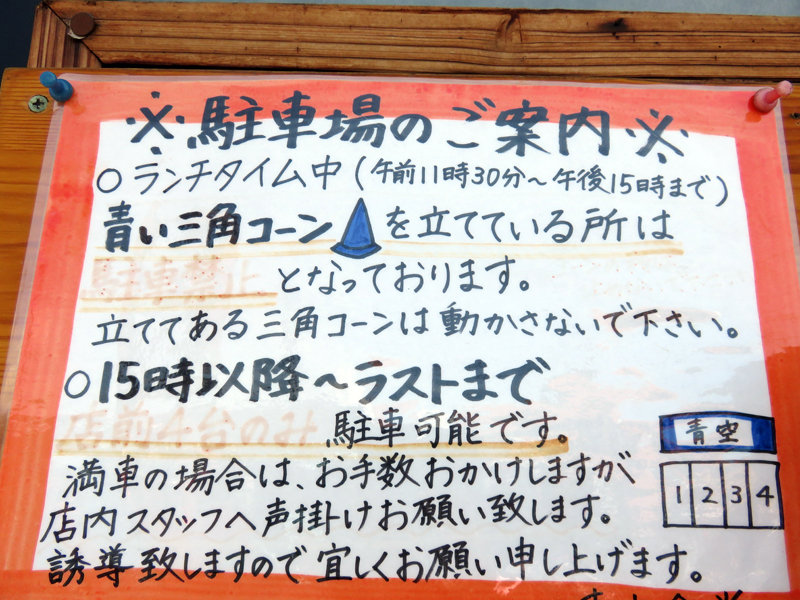 ※駐車場のご案内※
○ランチタイム中(午前11時30分～午後15時まで)
青い三角コーン を立てている所は
駐車禁止 となっております。
立ててある三角コーンは動かさないで下さい。
○15時以降～ラストまで
店前4台のみ 駐車可能です。
青空
1 2 3 4
満車の場合は、お手数おかけしますが
店内スタッフへ声掛けお願い致します。
誘導致しますので宜しくお願い申し上げます。